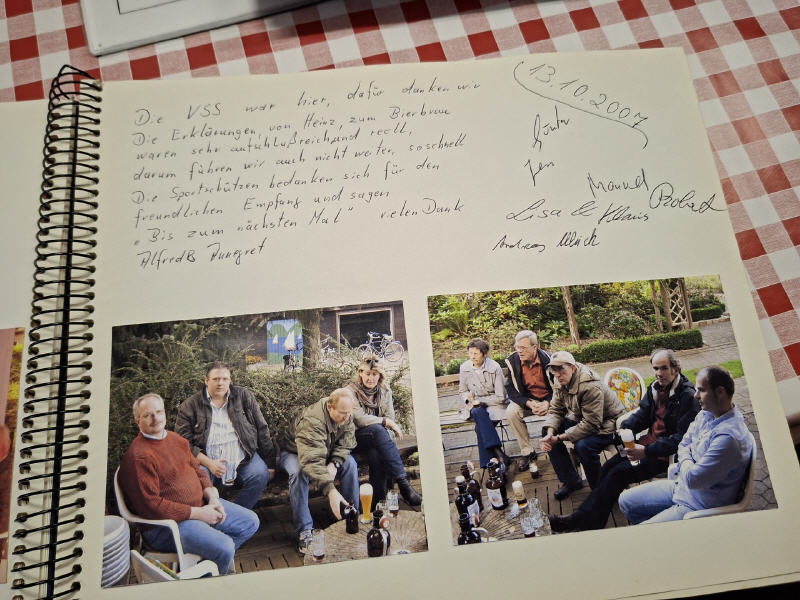 Die VSS war hier, dafür danken wir
Die Erklärungen, von Heinz, zum Bierbraue
waren sehr aufschlußreich und reell,
darum führen wir auch nicht weiter, so schnell
Die Sportschützen bedanken sich für den
freundlichen Empfang und sagen
"Bis zum nächsten Mal" vielen Dank
AlfredB Annegret
13.10.2007
Günter
Jen
Manuel
Lisa & Klaus
Andreas Ulrich